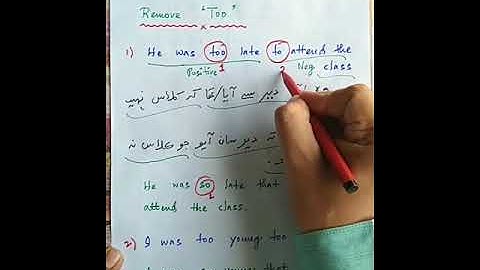 Remove "Too"
1) He was too late to attend the
Positive 1 2 Neg class
دیر سے آیا/تھا کہ کلاس نہیں
تہ دير سان آيو جو ڪلاس نہ
He was so late that
attend the class.
2) I was too young to